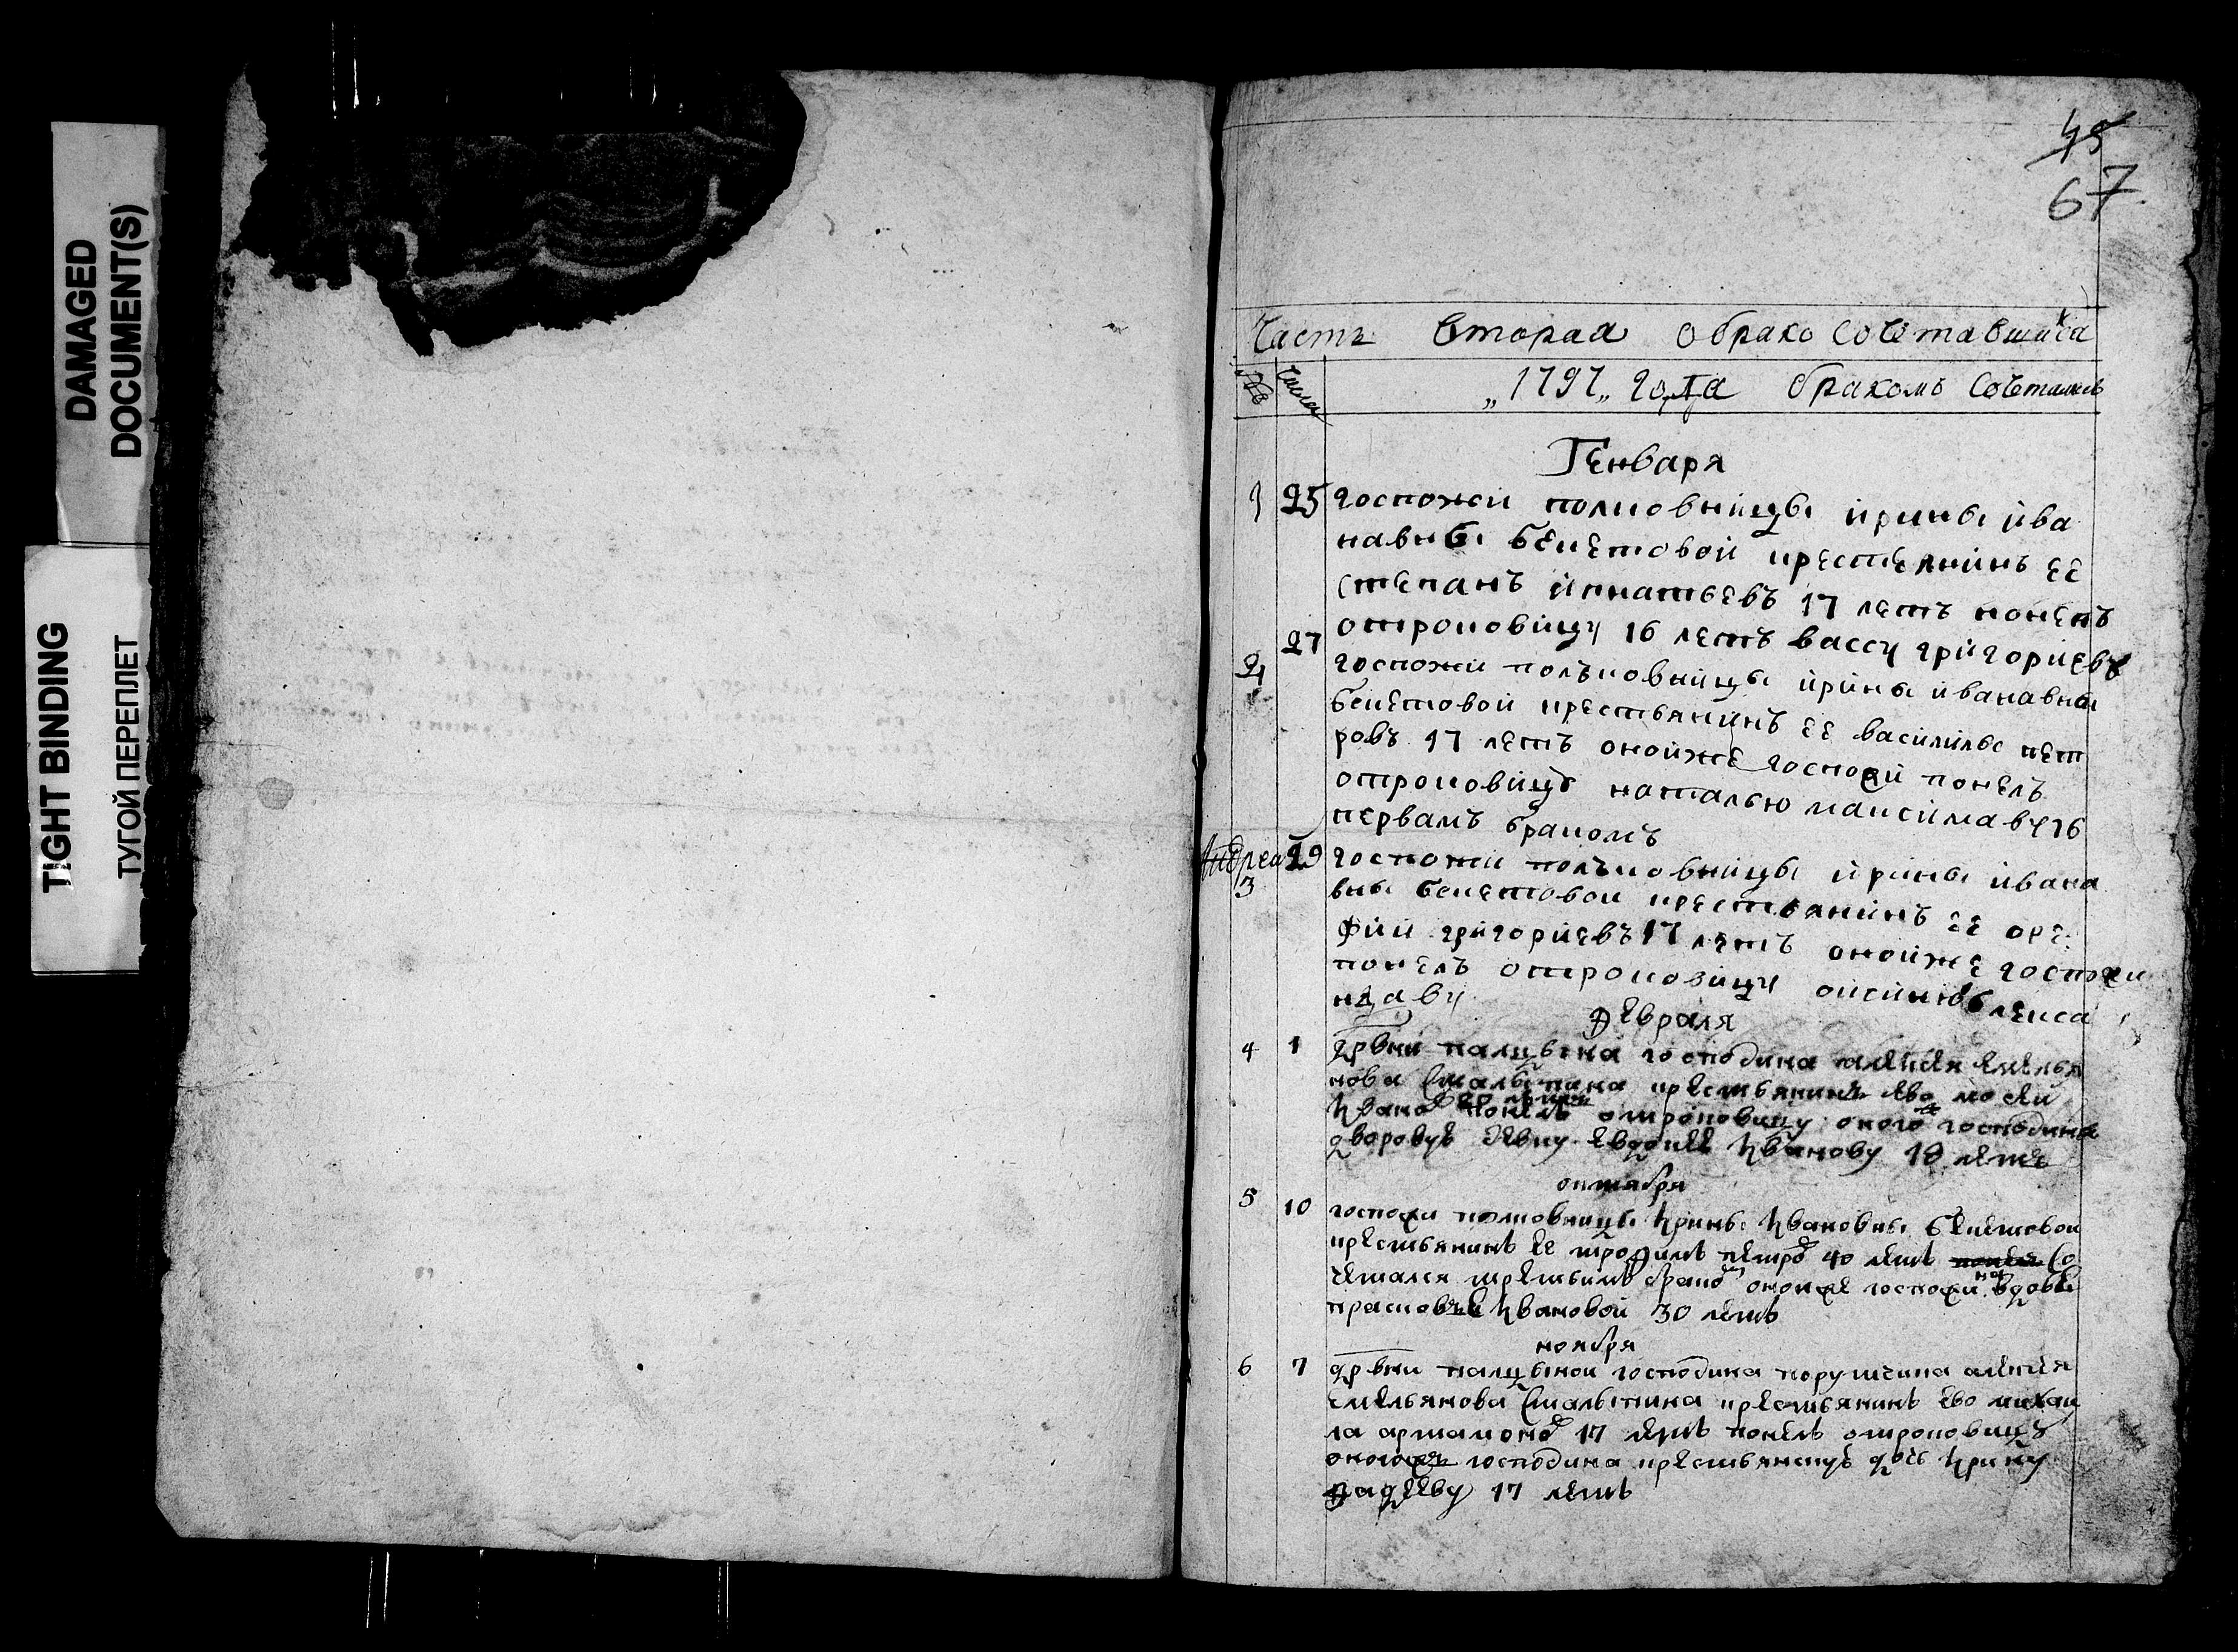 DAMAGED
DOCUMENT(S)
TIGHT BINDING
ТУГОЙ ПЕРЕПЛЕТ
45
67
Часть вторая обрако сочетавшихса
№ числа „1797„ года бракомъ сочетались
Генваря
1 25 госпожи полковницы ирины ива
навны бекетовой крестьянинъ ее
степанъ игнатьевъ 17 летъ понелъ
отроковицу 16 летъ вассу григориеву
2 27 госпожи полъковницы ирины иванавны
бекетовой крестьянинъ ее василиьй пет
ровъ 17 летъ онойже госпожи понелъ
отроковицу наталью максимаву 16
первамъ бракомъ
3 29 госпожи полъковницы ирины ивана
вны бекетовои крестьянинъ ее оре
фии григориевъ 17 летъ онойже госпожи
понелъ отроковицу оксинью алекса
ндаву
Февраля
4 1 дрвни палцына господина алекея емелья
нова сталыпина крестьянинъ ево мосеи
ивано понелъ отроковицу оного господина
дворовую девку евдокее иванову 18 летъ
октября
5 10 госпожи полковницы ирины ивановны бекетовои
крестьянинъ ее трофимъ петро 40 летъ со
четался третьимъ брако онойже госпожи на вдове
прасковье ивановой 30 летъ
ноября
6 7 дрвни палцынои господина порутчика алекея
емельянова сталыпина крестьянинъ ево михаи
ла артамоно 17 летъ понелъ отроковицу
оногоже господина крестьянскую дочь ирину
фадееву 17 летъ